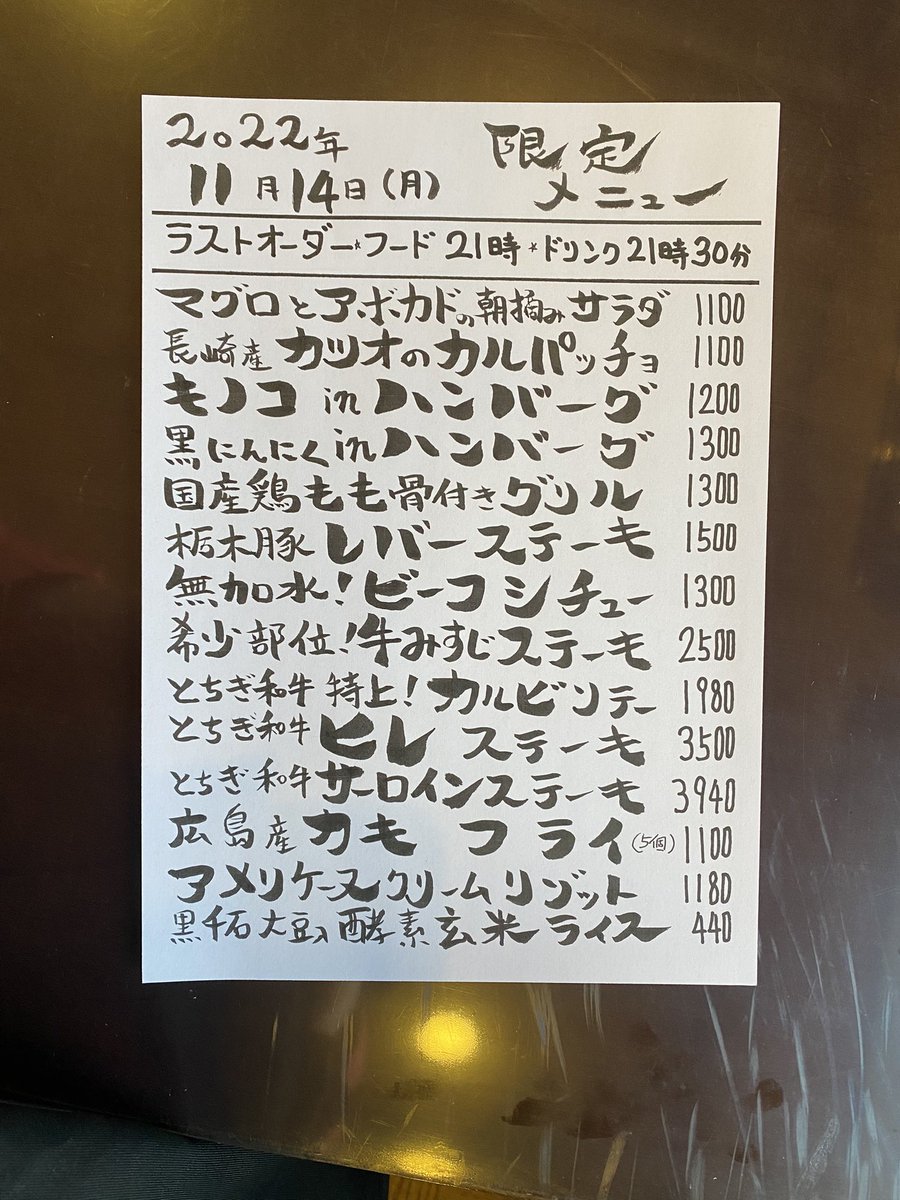 2022年 限定
11月14日(月) メニュー
ラストオーダー★フード21時★ドリンク21時30分
マグロとアボカドの朝摘みサラダ 1100
長崎産カツオのカルパッチョ 1100
キノコinハンバーグ 1200
黒にんにくinハンバーグ 1300
国産鶏もも骨付きグリル 1300
栃木豚レバーステーキ 1500
無加水!ビーフシチュー 1300
希少部位!牛みすじステーキ 2500
とちぎ和牛特上!カルビソテー 1980
とちぎ和牛ヒレステーキ 3500
とちぎ和牛サーロインステーキ 3940
広島産カキフライ(5個) 1100
アメリケーヌクリームリゾット 1180
黒千石大豆入酵素玄米ライス 440